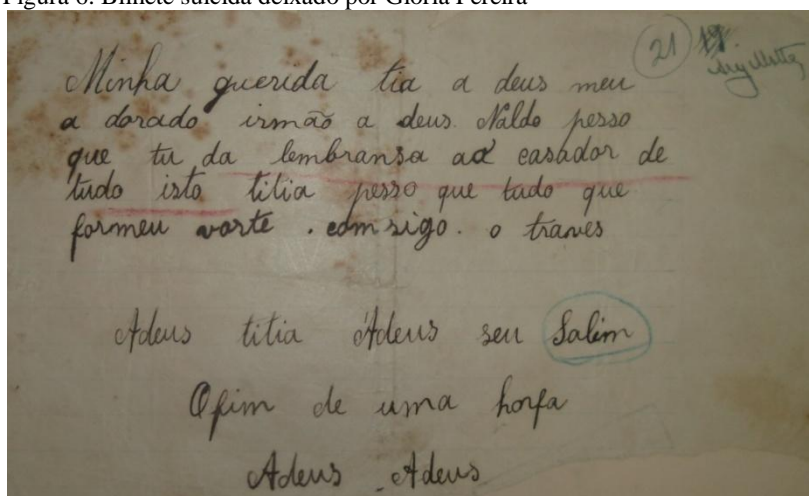 Figura 6: Bilhete suicida deixado por Glória Pereira
21
Minha querida tia a deus meu
a dorado irmão a deus. Naldo pesso
que tu da lembransa ao casador de
tudo isto titia pesso que tudo que
formeu vorte . com sigo . o traves
Adeus titia Adeus seu Salim
O fim de uma horfa
Adeus Adeus